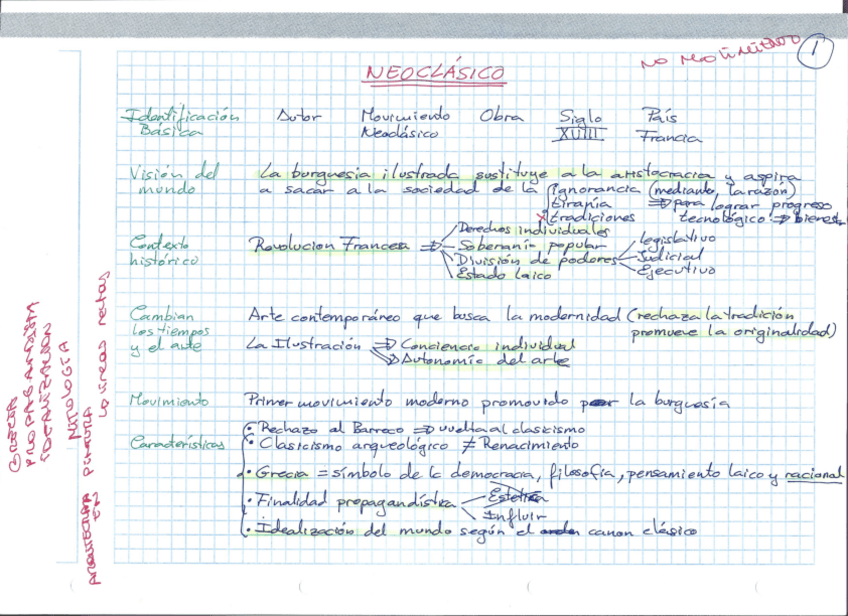 NO MOVIMIENTO
1
NEOCLÁSICO
Identificación Básica
Autor
Movimiento Neoclásico
Obra
Siglo XVIII
País Francia
Visión del mundo
La burguesía ilustrada sustituye a la aristocracia y aspira
a sacar a la sociedad de la ignorancia (mediante la razón)
tiranía ⇒ para lograr progreso
tradiciones tecnológico ⇒ bienest.
Contexto histórico
Revolucion Francesa ⇒
Derechos individuales
Soberanía popular
División de poderes
Legislativo
Judicial
Ejecutivo
Estado laico
Cambian los tiempos y el arte
Arte contemporáneo que busca la modernidad (rechaza la tradición
promueve la originalidad)
La Ilustración ⇒ Conciencia individual
⇒ Autonomía del arte
Movimiento
Primer movimiento moderno promovido por la burguesía
Características
• Rechazo al Barroco ⇒ vuelta al clasicismo
• Clasicismo arqueológico ≠ Renacimiento
• Grecia = símbolo de la democracia, filosofía, pensamiento laico y racional
• Finalidad propagandística
Estética
Influir
• Idealización del mundo según el canon clásico
GRECIA
PROPAGANDISTA
IDEALIZACIÓN
MITOLOGIA
ARQUITECTURA EN PINTURA
líneas rectas